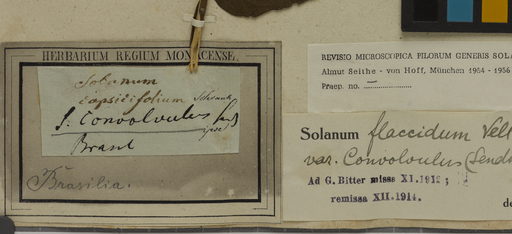 HERBARIUM REGIUM MONACENSE.
Solanum
capsicifolium
S. Convolvulus
Brasil
Brasilia.
REVISIO MICROSCOPICA PILORUM GENERIS SOLA
Almut Seithe - von Hoff, München 1954 - 1956
Praep. no. –
Solanum flaccidum Vell
var. Convolvulus (Sendt
Ad G. Bitter missa XI.1912;
remissa XII.1914.
de